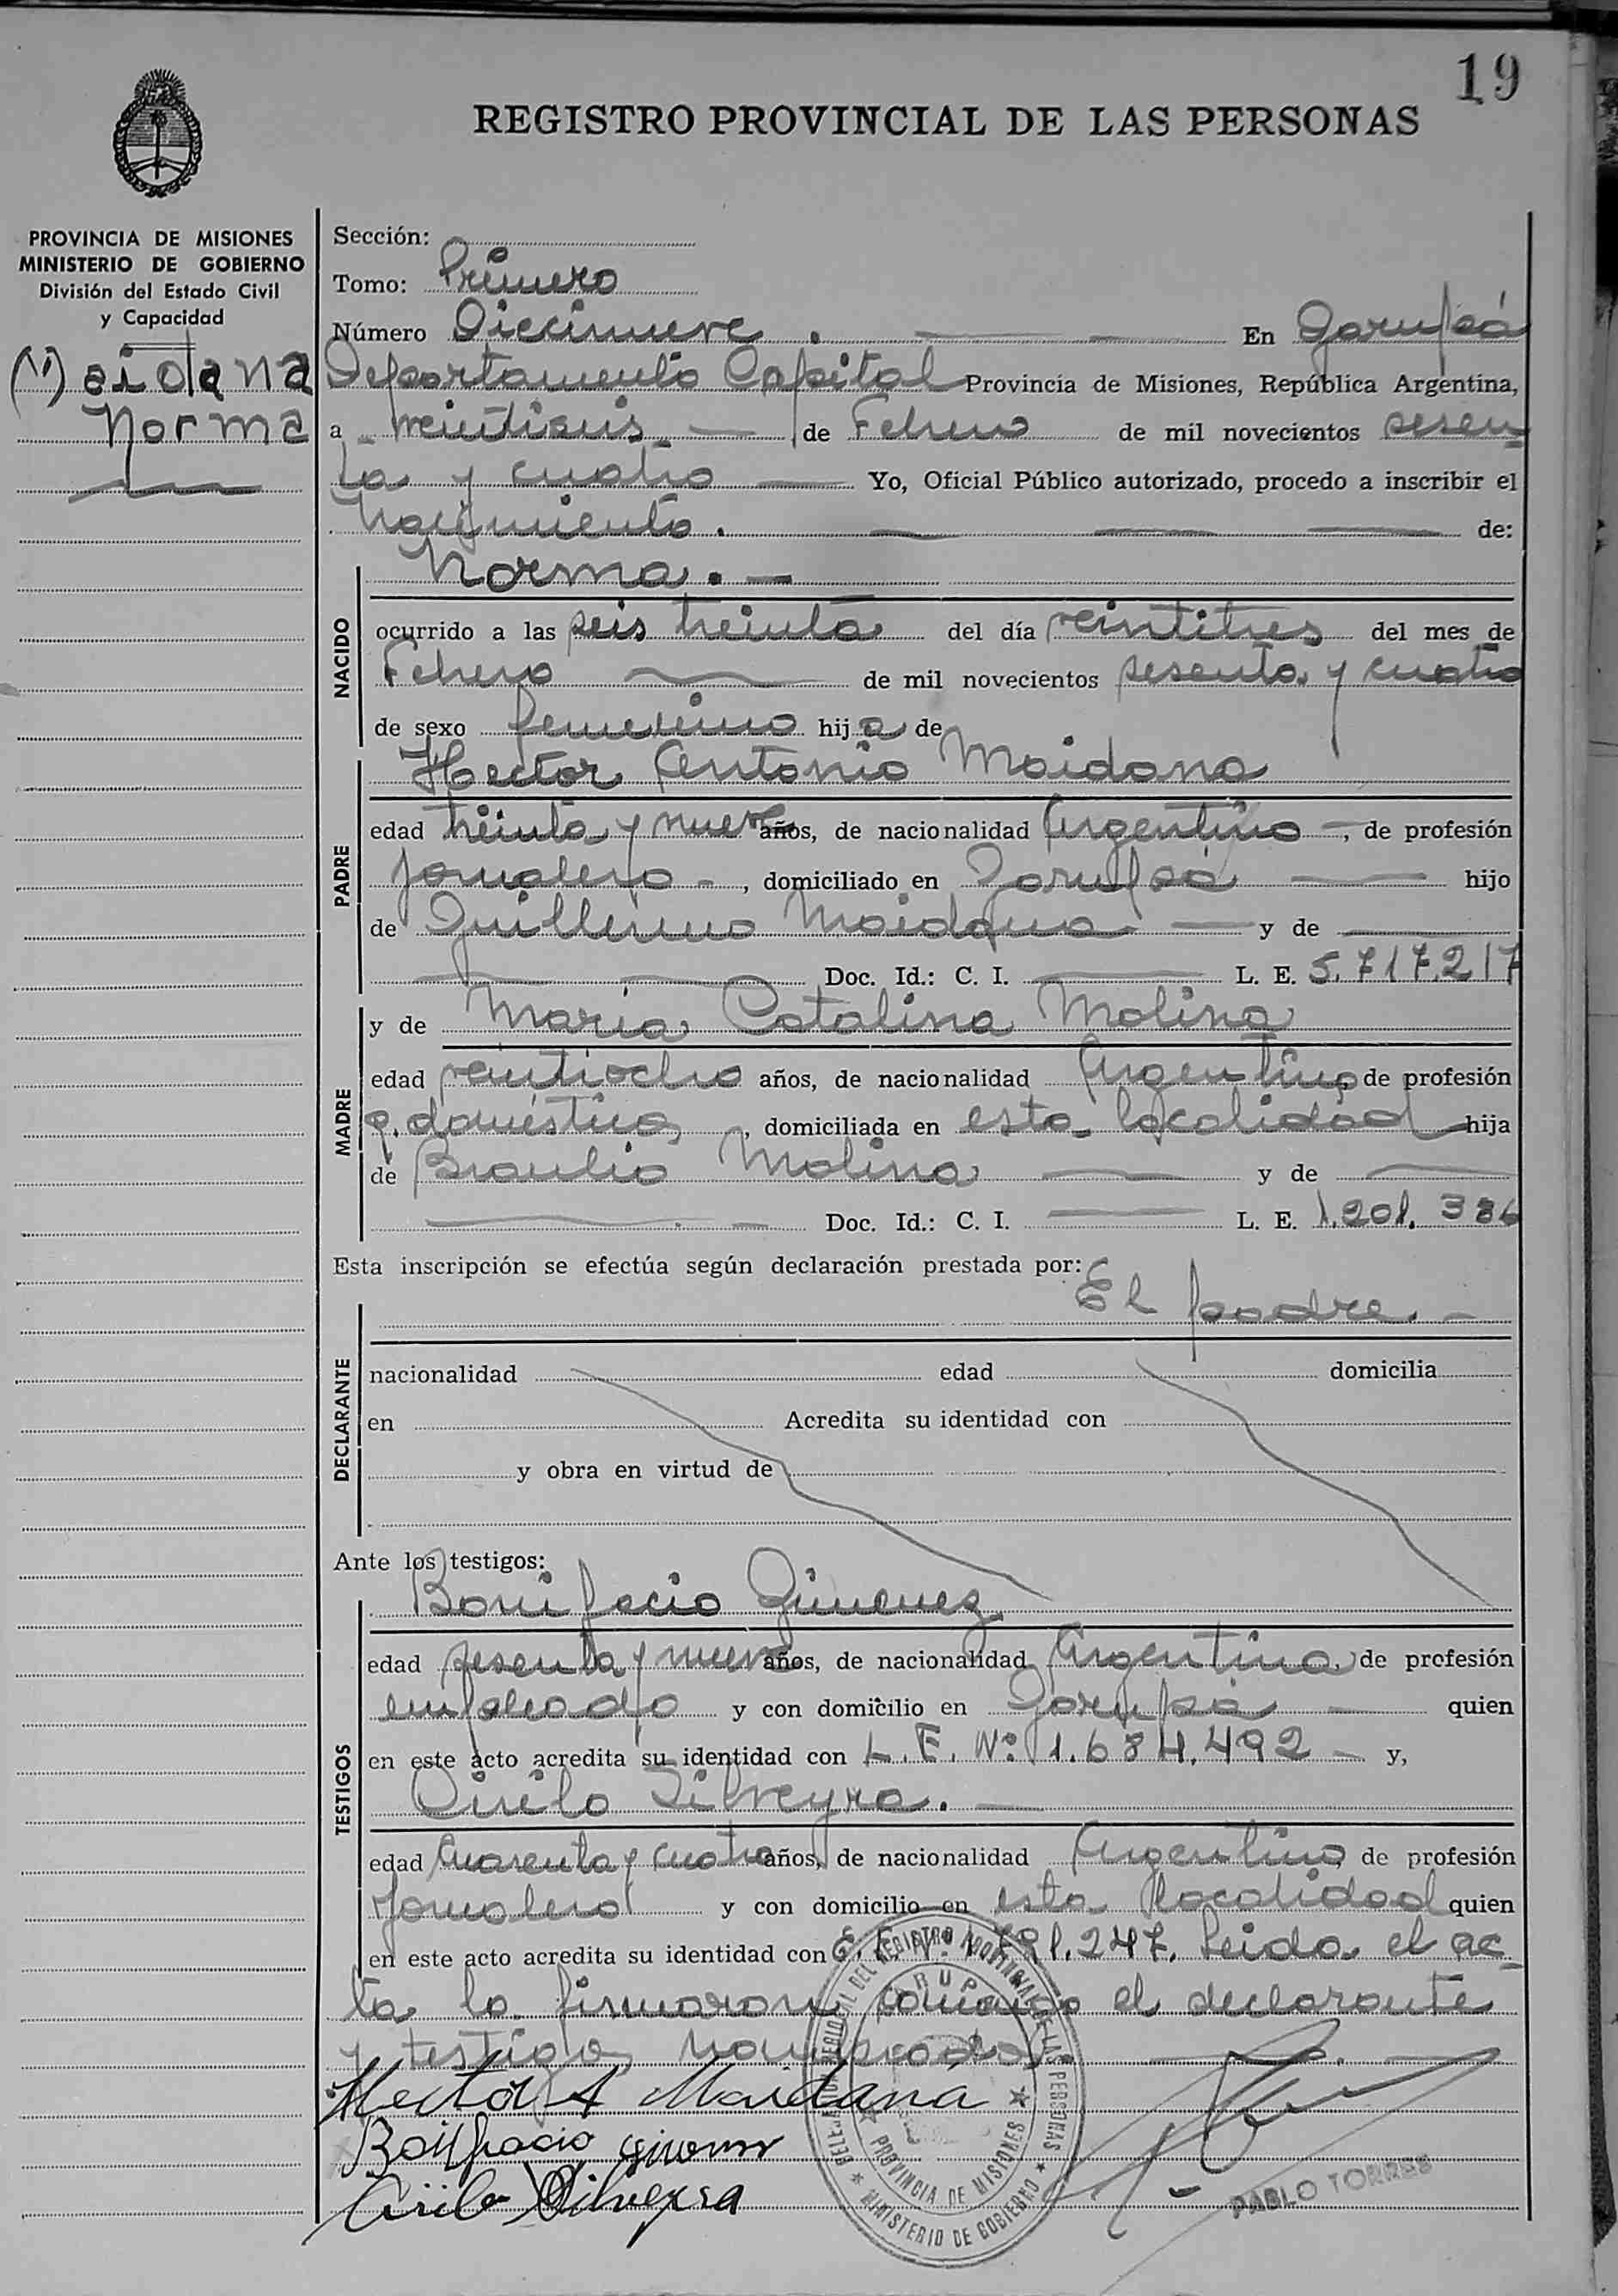 19
REGISTRO PROVINCIAL DE LAS PERSONAS
PROVINCIA DE MISIONES
MINISTERIO DE GOBIERNO
División del Estado Civil
y Capacidad
aidana
Norma
Sección:
Tomo: Primero
Número Diecinueve. En Garupá
Departamento Capital Provincia de Misiones, República Argentina,
a veintiseis de Febrero de mil novecientos sesen-
ta y cuatro Yo, Oficial Público autorizado, procedo a inscribir el
nacimiento. de:
NACIDO
Norma. —
ocurrido a las seis treinta del día veintitres del mes de
Febrero de mil novecientos sesenta y cuatro
de sexo femenino hija de
PADRE
Hector Antonio Maidana
edad treinta y nueve años, de nacionalidad Argentino, de profesión
jornalero, domiciliado en Garupá hijo
de Guillermo Maidana y de
Doc. Id.: C. I. L. E. 5.717.217
MADRE
y de Maria Catalina Molina
edad veintiocho años, de nacionalidad Argentina, de profesión
q. domésticos, domiciliada en esta localidad hija
de Braulio Molina y de
Doc. Id.: C. I. L. E. 1.201.386
Esta inscripción se efectúa según declaración prestada por:
El padre. —
DECLARANTE
nacionalidad edad domicilia
en Acredita su identidad con
y obra en virtud de
Ante los testigos:
TESTIGOS
Bonifacio Gimenez
edad sesenta y nueve años, de nacionalidad Argentina, de profesión
empleado y con domicilio en Garupá quien
en este acto acredita su identidad con L. E. Nº 1.684.492 — y,
Cirilo Silveyra. —
edad cuarenta y cuatro años, de nacionalidad Argentino, de profesión
jornalero y con domicilio en esta localidad quien
en este acto acredita su identidad con 247. Leida el ac-
ta la firmaron conmigo el declarante
y testigos nombrados
Hector A Maidana
Bonifacio
Cirilo Silveyra
PABLO TORRES
DEL REGISTRO PROVINCIAL DE LAS PERSONAS
MINISTERIO DE GOBIERNO
PROVINCIA DE MISIONES